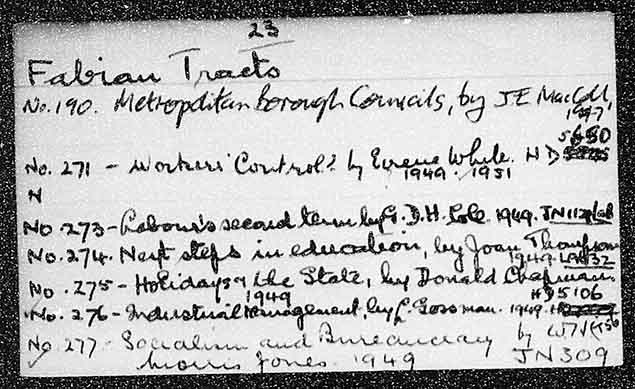 23
Fabian Tracts
No. 190. Metropolitan Borough Councils, by J.E. MacColl,
1947
5650
No. 271 - Workers' Control? by Eirene White. HD
1949. 1951
N
No. 273 - Labour's second term by G.D.H. Cole 1949. JN1129
No. 274. Next steps in education, by Joan Thompson
1949.
No. 275 - Holidays & the State, by Donald Chapman
1949
HD5106
No. 276 - Industrial management, by 1949.
No. 277 - Socialism and Bureaucracy by
Jones. 1949 JN309